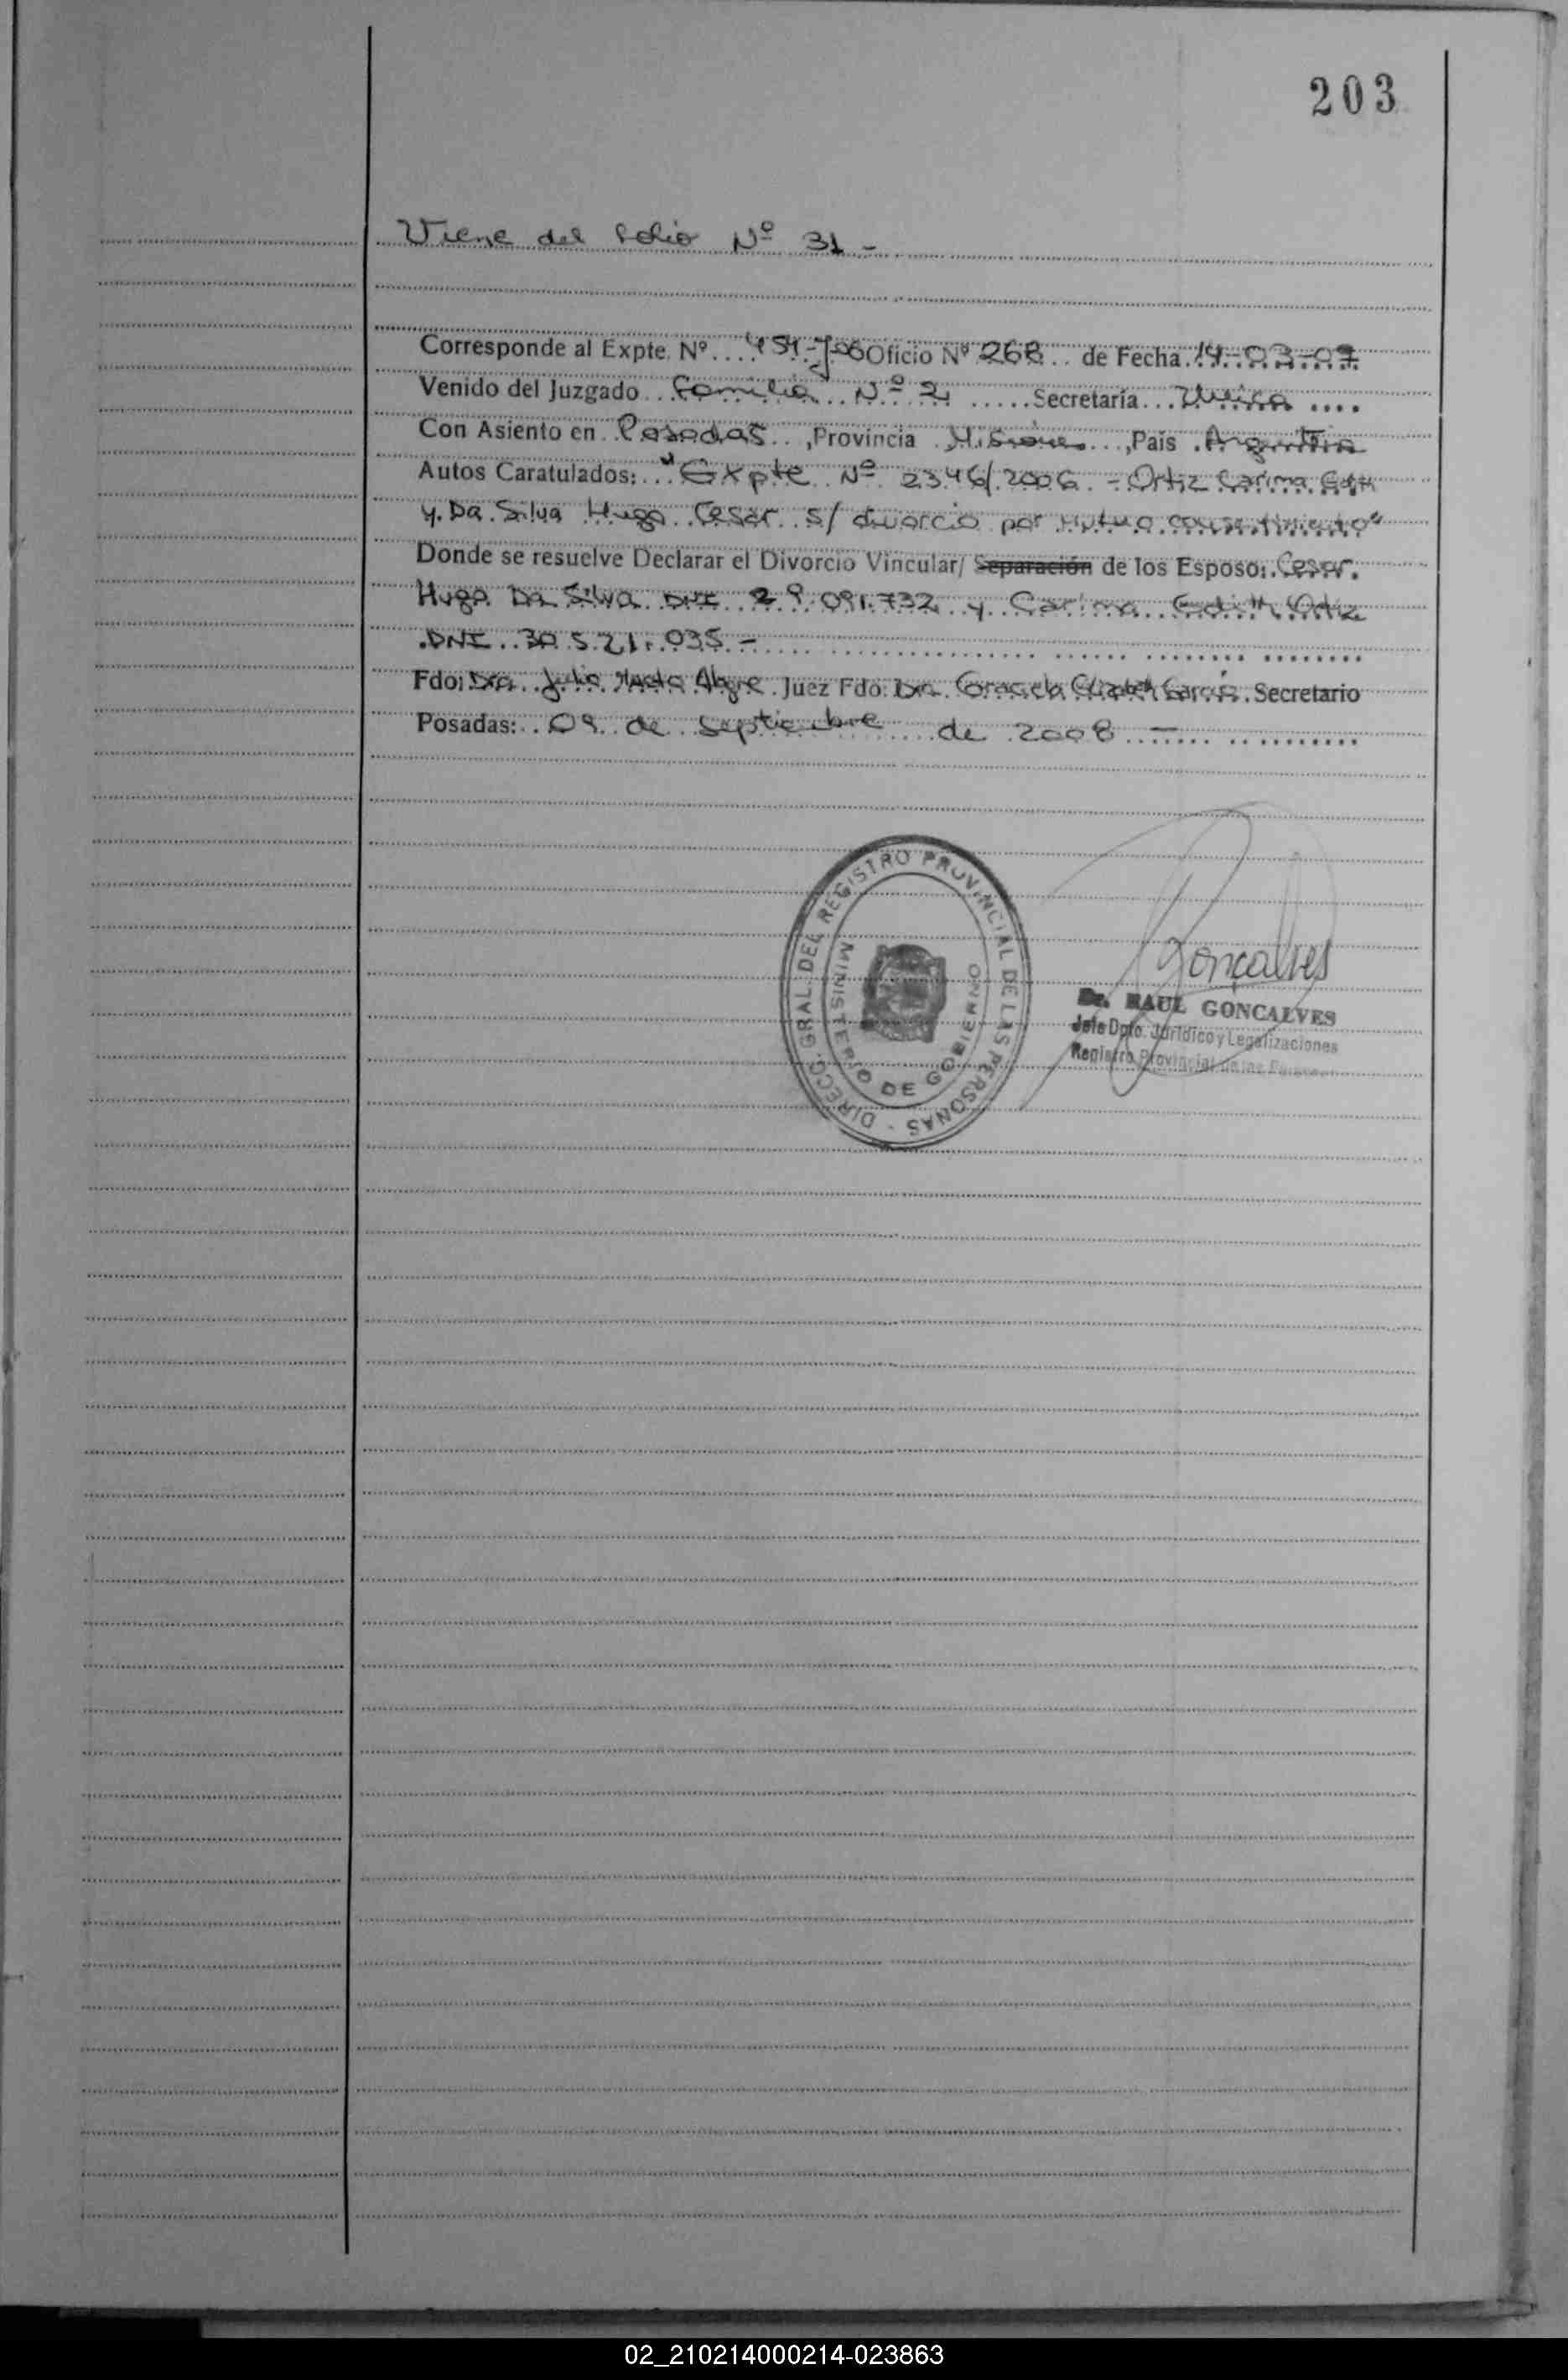 203
Viene del folio Nº 31 -
Corresponde al Expte. Nº 454-J-06 Oficio Nº 268 de Fecha 14-03-07
Venido del Juzgado Familia Nº 2 Secretaría Unica
Con Asiento en Posadas, Provincia Misiones, País Argentina
Autos Caratulados: "Expte Nº 2346/2006 - Ortiz Carima Edith
y Da Silva Hugo Cesar s/ divorcio por mutuo consentimiento"
Donde se resuelve Declarar el Divorcio Vincular/ Separación de los Esposo: Cesar
Hugo Da Silva DNI 29.091.732 y Carima Edith Ortiz
DNI 30.521.035 -
Fdo: Dra. Julia Alegre Juez Fdo: Dra. Graciela Elizabeth Garcia Secretario
Posadas: 09 de Septiembre de 2008 -
DIRECC. GRAL. DEL REGISTRO PROVINCIAL DE LAS PERSONAS -
MINISTERIO DE GOBIERNO
Goncalves
Dr. RAUL GONCALVES
Jefe Dpto. Jurídico y Legalizaciones
Registro Provincial de las Personas
02_210214000214-023863